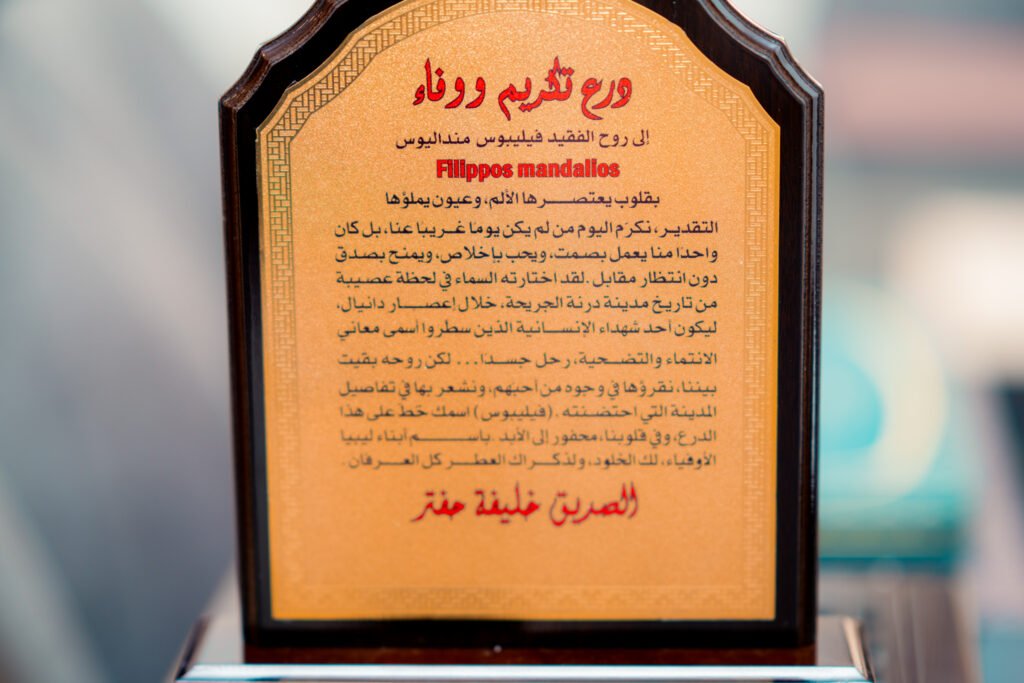 درع تكريم ووفاء
إلى روح الفقيد فيليبوس منداليوس
Filippos mandalios
بقلوب يعتصرها الألم، وعيون يملؤها
التقدير، نكرّم اليوم من لم يكن يوما غريبًا عنا، بل كان
واحدًا منا يعمل بصمت، ويحب بإخلاص، ويمنح بصدق
دون انتظار مقابل .لقد اختارته السماء في لحظة عصيبة
من تاريخ مدينة درنة الجريحة، خلال إعصار دانيال،
ليكون أحد شهداء الإنسانية الذين سطروا أسمى معاني
الانتماء والتضحية، رحل جسدًا... لكن روحه بقيت
بيننا، نقرؤها في وجوه من أحبهم، ونشعر بها في تفاصيل
المدينة التي احتضنته .(فيليبوس) اسمك خط على هذا
الدرع، وفي قلوبنا، محفور إلى الأبد .باسم أبناء ليبيا
الأوفياء، لك الخلود، ولذكراك العطر كل العرفان.
الصديق خليفة حفتر